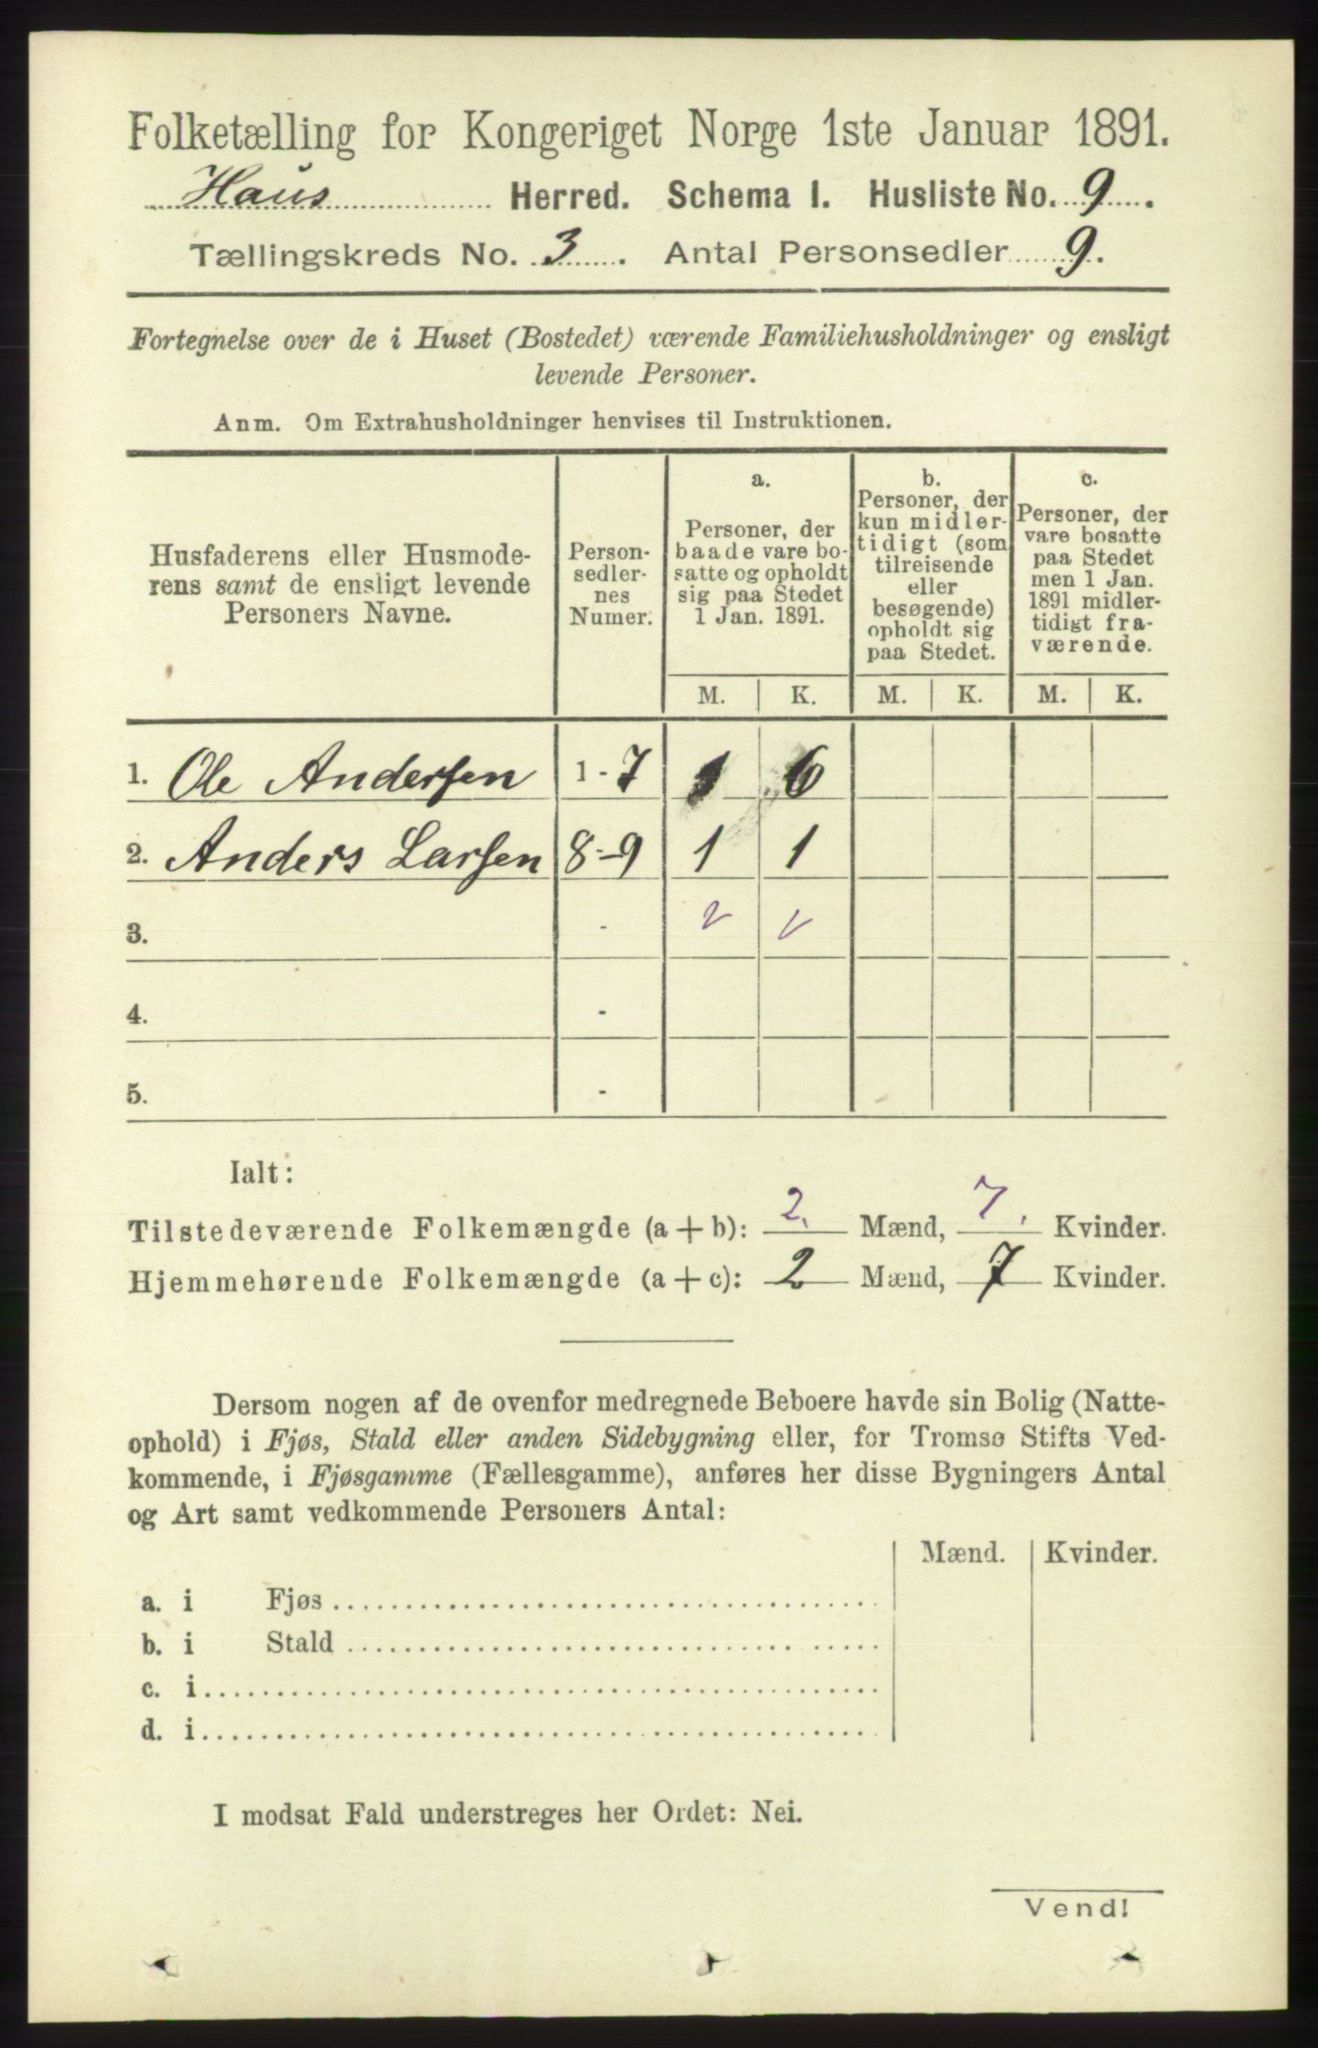 Folketælling for Kongeriget Norge 1ste Januar 1891.
Haus Herred. Schema I. Husliste No. 9.
Tællingskreds No. 3. Antal Personsedler 9.
Fortegnelse over de i Huset (Bostedet) værende Familiehusholdninger og ensligt
levende Personer.
Anm. Om Extrahusholdninger henvises til Instruktionen.
Husfaderens eller Husmode-
rens samt de ensligt levende
Personers Navne.
Person-
sedler-
nes
Numer.
a.
Personer, der
baade vare bo-
satte og opholdt
sig paa Stedet
1 Jan. 1891.
b.
Personer, der
kun midler-
tidigt (som
tilreisende
eller
besøgende)
opholdt sig
paa Stedet.
c.
Personer, der
vare bosatte
paa Stedet
men 1 Jan.
1891 midler-
tidigt fra-
værende.
M. K. M. K. M. K.
1. Ole Andersen 1-7 1 6
2. Anders Larsen 8-9 1 1
3. -
4. -
5. -
Ialt:
Tilstedeværende Folkemængde (a + b): 2. Mænd, 7. Kvinder.
Hjemmehørende Folkemængde (a + c): 2 Mænd, 7 Kvinder.
Dersom nogen af de ovenfor medregnede Beboere havde sin Bolig (Natte-
ophold) i Fjøs, Stald eller anden Sidebygning eller, for Tromsø Stifts Ved-
kommende, i Fjøsgamme (Fællesgamme), anføres her disse Bygningers Antal
og Art samt vedkommende Personers Antal:
Mænd. Kvinder.
a. i Fjøs
b. i Stald
c. i
d. i
I modsat Fald understreges her Ordet: Nei.
Vend!